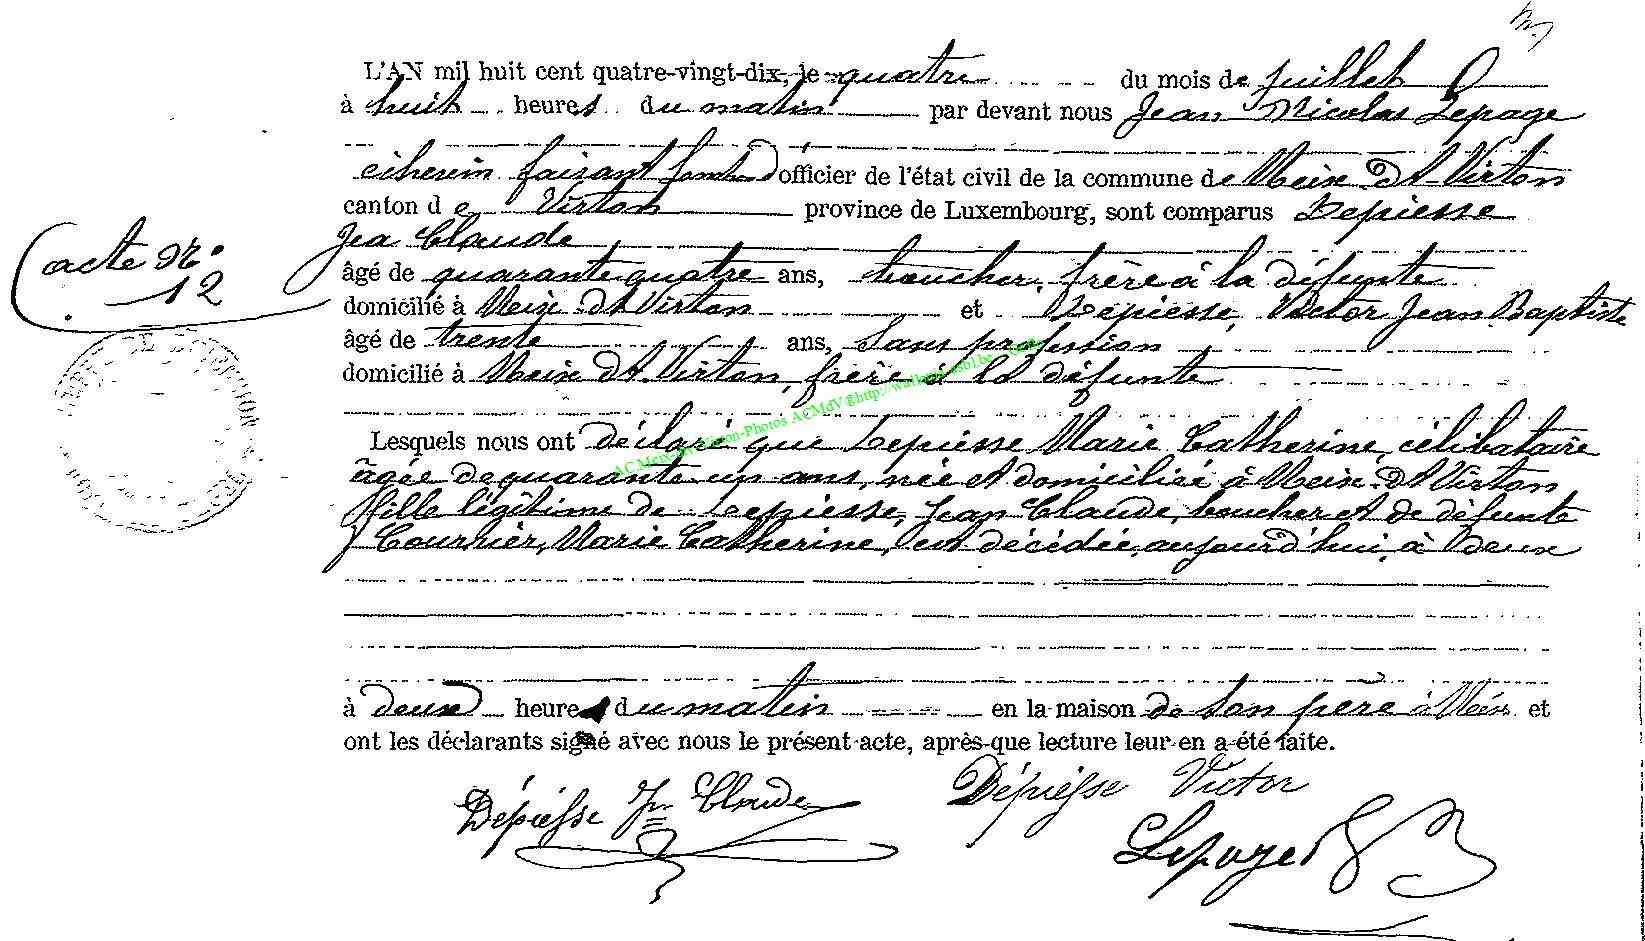 L'AN mil huit cent quatre-vingt-dix, le quatre du mois de juillet
à huit heures du matin par devant nous Jean Nicolas Lepage
échevin faisant fonct d'officier de l'état civil de la commune de Meix-dt-Virton
canton de Virton province de Luxembourg, sont comparus Depiesse
Jea Claude
acte No
12
âgé de quarante quatre ans, boucher, frère à la défunte
domicilié à Meix-dt-Virton et Depiesse, Victor Jean Baptiste
âgé de trente ans, sans profession
domicilié à Meix dt-Virton, frère à la défunte
Lesquels nous ont déclaré que Depiesse Marie Catherine, célibataire
âgée de quarante un ans, née et domiciliée à Meix-dt-Virton
fille légitime de Depiesse, Jean Claude, boucher et de défunte
Courrier, Marie Catherine, est décédée, aujourd'hui, à deux
à deux heures du matin en la maison de son père à Meix et
ont les déclarants signé avec nous le présent acte, après que lecture leur en a été faite.
Dépiesse Jn Claude Dépiesse Victor
Lepage